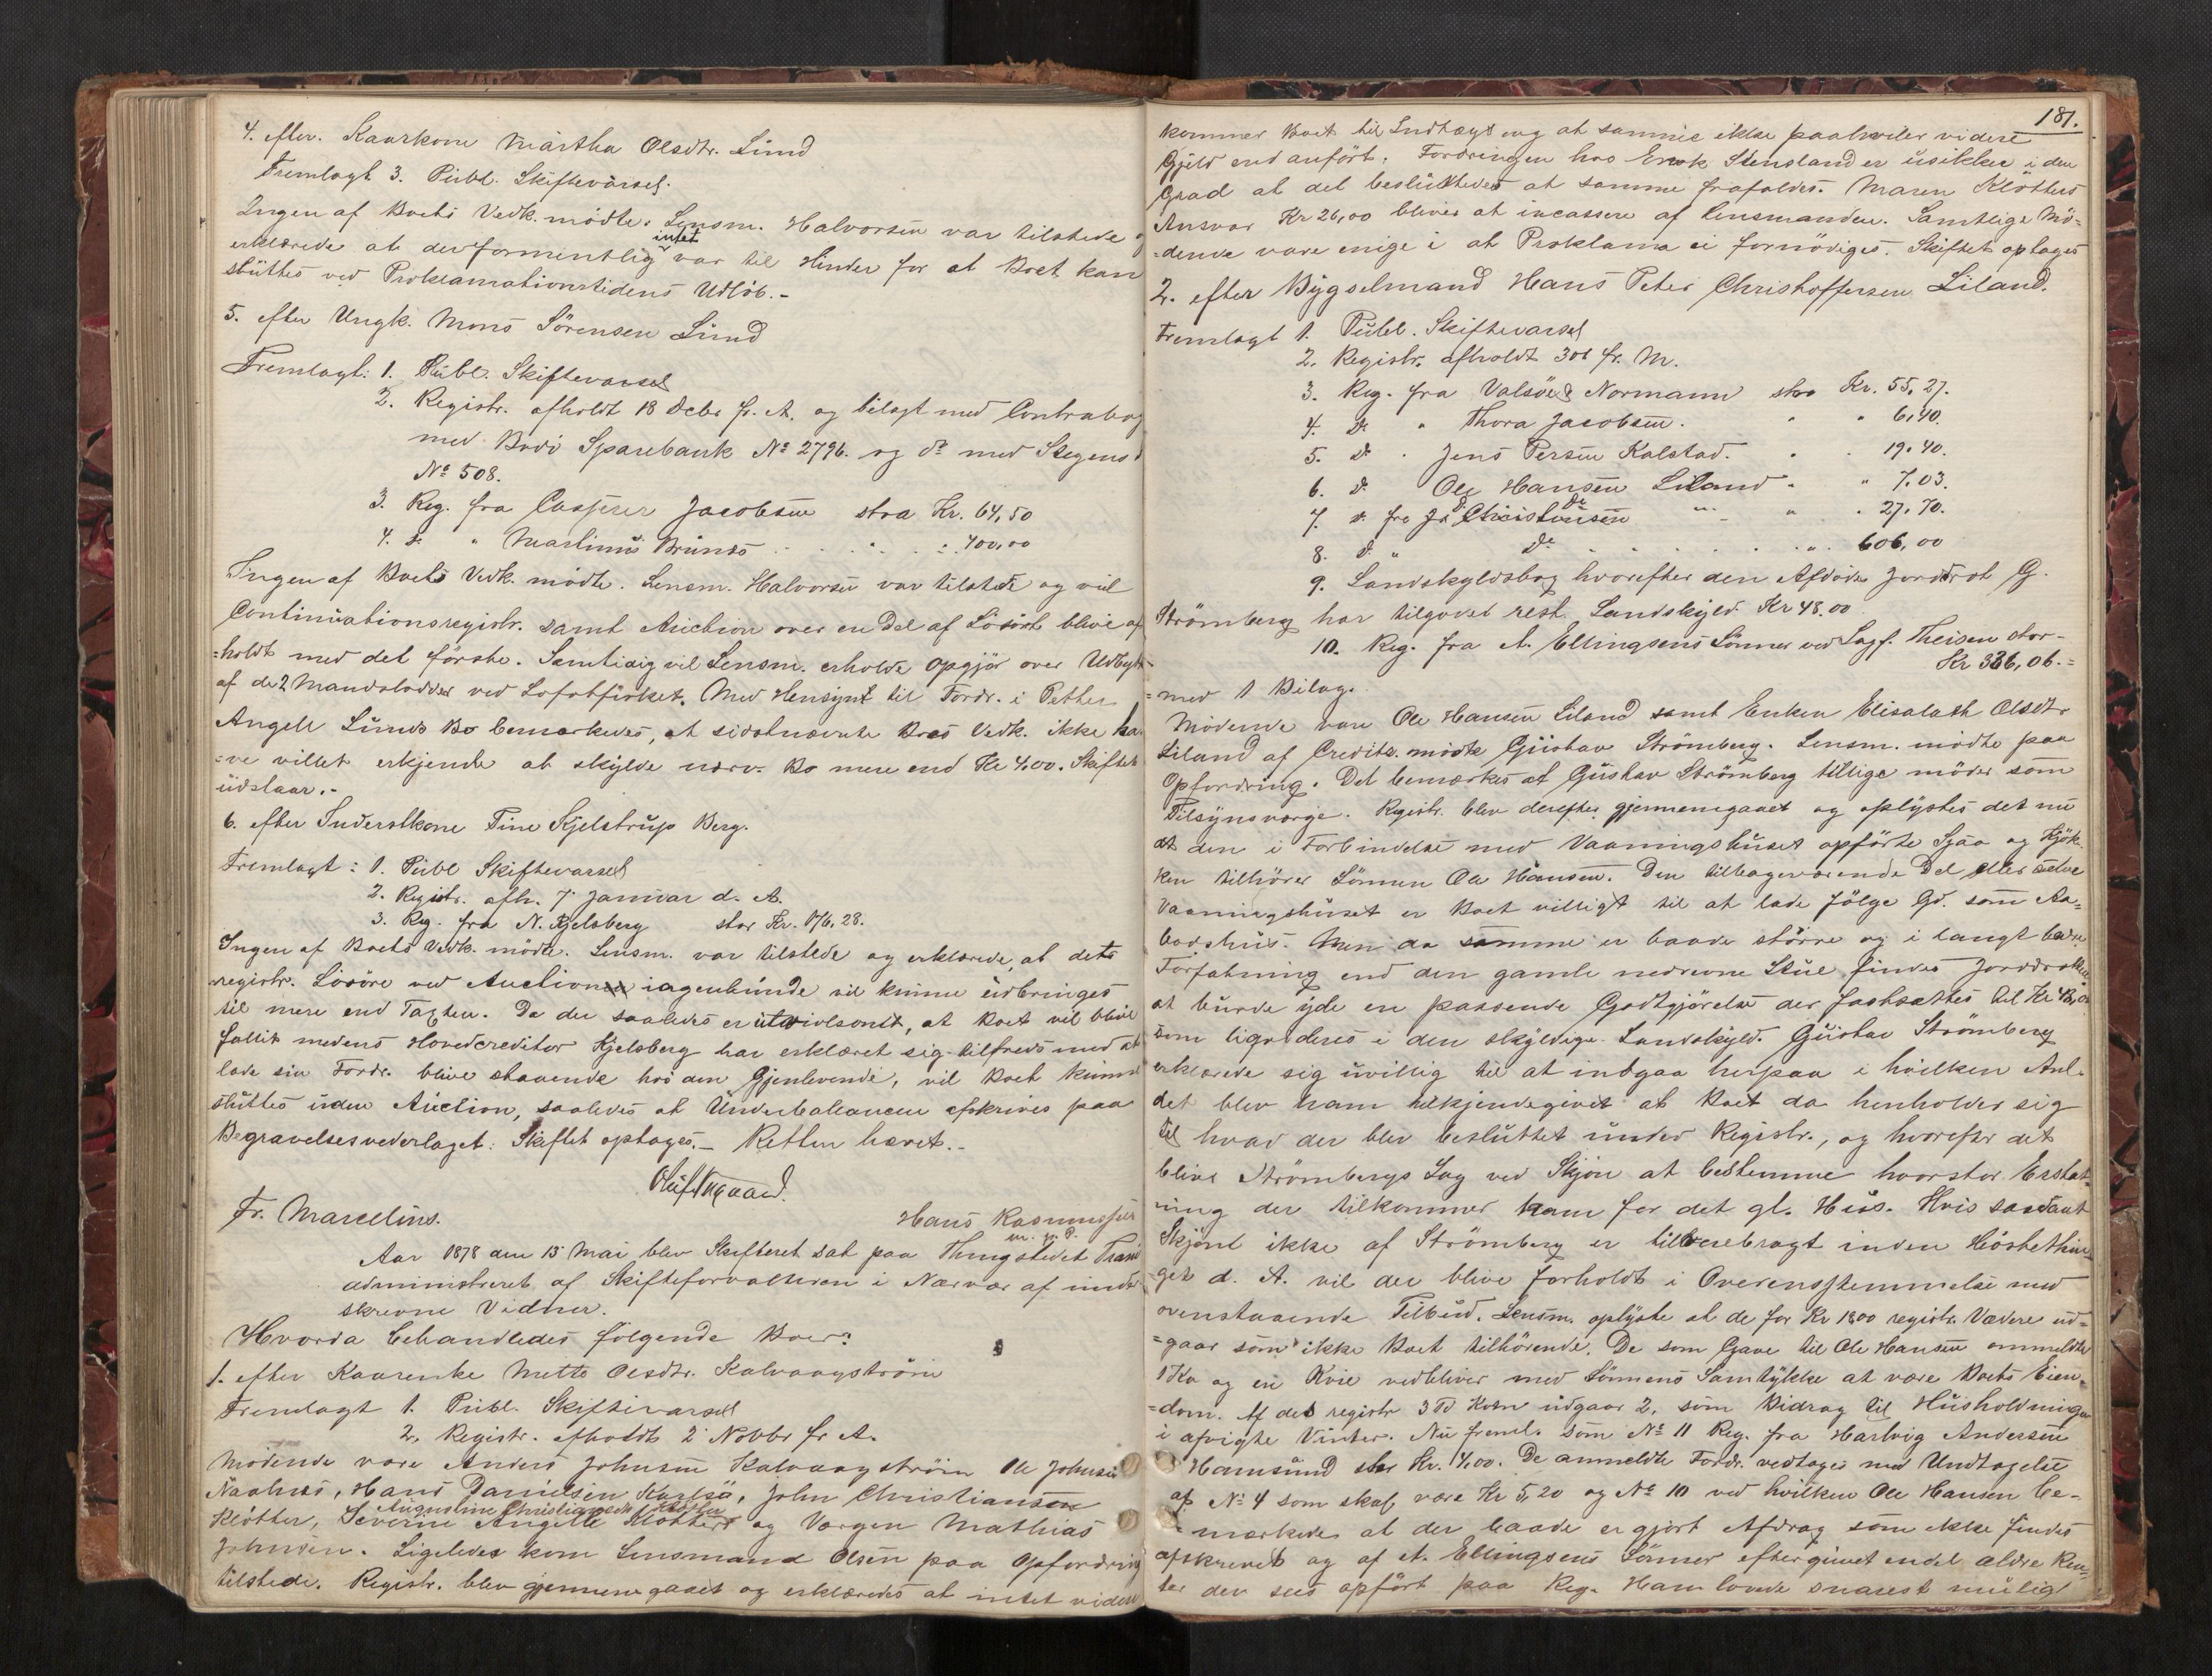 4. efter Kaarkone Martha Olsdtr. Lund
Fremlagt 3. Publ. Skiftevarsel.
Ingen af Boets Vedk. mödte. Lensm. Halvorsen var tilstede
erklærede at der formentlig intet var til Hinder for at Boet kan
sluttes ved Proklamationstidens Udlöb.-
5. efter Ungk. Mons Sörensen Lund
Fremlagt: 1. Publ. Skiftevarsel
2. Registr. afholdt 18 Decbr f. A. og bilagt med Contrabog
med Bodö Sparebank No 2796. og do med Stegens
No 508.
3. Reg. fra Casper Jacobsen stor Kr. 64,50
4. do " Martinus Bruns . . . . 400,00
Ingen af Boets Vedk. mödte. Lensm. Halvorsen var tilstede og vil
Continuationsregistr. samt Auction over en Del af Lösöret blive af
=holdt med det förste. Samtidig vil Lensm. erholde Opgjör over Udbytte
af de 2 Mandslodder ved Lofotfisket. Med Hensyn til Fordr. i Petter
Angell Lunds Bo bemærkedes, at sidstnævnte Boes Vedk. ikke ha-
=ve villet erkjende at skylde nærv. Bo mere end Kr 4,00. Skiftet
udstaar.-
6. efter Inderstkone Tine Kjelstrup Berg.
Fremlagt: 1. Publ Skiftevarsel
2. Registr. afh. 7 Januar d. A.
3. Reg. fra N. Kjelsberg stor Kr. 176,28.
Ingen af Boets Vedk. mödte. Lensm. var tilstede og erklærede, at det
registr. Lösöre ved Auction ingenlunde vil kunne udbringes
til mere end Taxten. Da der saaledes er utvivlsomt, at Boet vil blive
fallit medens Hovedcreditor Kjelsberg har erklæret sig tilfreds med at
lade sin Fordr. blive staaende hos den Gjenlevende, vil Boet kunne
sluttes uden Auction, saaledes at Underballancen afskrives paa
Begravelsesvederlaget. Skiftet optages.- Retten hævet.-
Fr. Marcelius. Hans Rasmussen
m. p. P.
Aar 1878 den 15 Mai blev Skifteret sat paa Thingstedet Tranö
administreret af Skifteforvalteren i Nærvær af under
skrevne Vidner.
Hvorda behandledes fölgende Boer:
1. efter Kaarenke Mette Olsdtr. Kalvaagström
Fremlagt 1. Publ. Skiftevarsel
2. Registr. afholdt 2 Novbr f. A.
Mödende vare Anders Johnsen Kalvaagström Ole Johnsen
Naalnes, Hans Danielsen Karlsö, John Christiansen
Augustine Christiansdtr. Klötter
Klötter, Severine Angelle Klötter og Værgen Mathias
Johnsen. Ligeledes kom Lensmand Olsen paa Opfordring
tilstede. Registr. blev gjennemgaaet og erklæredes at intet videre
181.
kommer Boet til Indtægt og at samme ikke paahviler videre
Gjeld end anfört. Fordringen hos Enok Stensland er usikker i den
Grad at det besluttedes at samme frafaldes. Maren Klötters
Ansvar Kr 26,00 bliver at incassere af Lensmanden. Samtlige Mö=
=dende vare enige i at Proklama ei fornödiges. Skiftet optages
2. efter Bygselmand Hans Peter Christoffersen Liland.
Fremlagt 1. Publ. Skiftevarsel
2. Registr. afholdt 30t fr. M.
3. Reg. fra Valsöe & Normann stor Kr. 55,27.
4. do " Thora Jacobsen. " " 6,40.
5. do " Jens Persen Kalstad. " " 19.40.
6. do Ole Hansen Liland " " 7.03.
7. do fra Jd Christensen " " 27.70.
8. do " do . . . . . " 606,00
9. Landskyldsbog hvorefter den Afdödes Jorddrot G.
Strömberg har tilgode rest. Landskyld Kr 48.00.
10. Reg. fra A. Ellingsens Sönner ved Sagf. Theisen stor-
Kr 336,06.=
=med 1 Bilag.
Mödende vare Ole Hansen Liland samt Enken Elisabeth Olsdtr
Liland af Credits. mödte Gustav Strömberg. Lensm. mödte paa
Opfordring. Det bemærkes at Gustav Strömberg tillige möder som
Tilsynsværge. Registr. blev derefter gjennemgaaet og oplystes det nu
at den i Forbindelse med Vaaningshuset opförte Sjaa og Kjök-
ken tilhörer Sönnen Ole Hansen. Den tilbageværende Del eller selve
Vaaningshuset er Boet villigt til at lade fölge Gd. som Aa=
bodshus. Men da samme er baade större og i langt bedre
Forfatning end den gamle nedrevne Stue findes Jorddrotten
at burde yde en passende Godtgjörelse der fastsættes til Kr 48,00
som liqvideres i den skyldige Landskyld. Gustav Strömberg
erklærede sig uvillig til at indgaa herpaa i hvilken Anl.
det blev ham tilkjendegivet at Boet da henholder sig
til hvad der blev besluttet under Registr., og hvorefter det
blive Strömbergs Sag ved Skjön at bestemme hvor stor Erstat-
ning der tilkommer ham for det gl. Hus. Hvis saadant
Skjönt ikke af Strömberg er tilveiebragt inden Hösttethin-
get d. A. vil der blive forholdt i Overensstemmelse med
ovenstaaende Tilbud. Lensm. oplyste at de for Kr 18,00 registr. Vædere ud=
=gaar som ikke Boet tilhörende. De som Gave til Ole Hansen anmeldte
1 Ko og en Kvie vedbliver med Sönnens Samtykke at være Boets Eien=
=dom. Af det registr 3 Td Korn udgaar 2, som Bidrag til Husholdningen
i afvigte Vinter. Nu freml. som No 11 Reg. fra Hartvig Andersen
Hamsund stor Kr. 4,00. De anmeldte Fordr. vedtages med Undtagelse
af No 4 som skal være Kr 5,20 og No 10 ved hvilken Ole Hansen be-
=mærkede at der baade er gjört Afdrag som ikke findes
afskrevet og af A. Ellingsens Sönner eftergivet endel ældre Ren=
ter der sees opfört paa Reg. Ham lovede snarest mulig